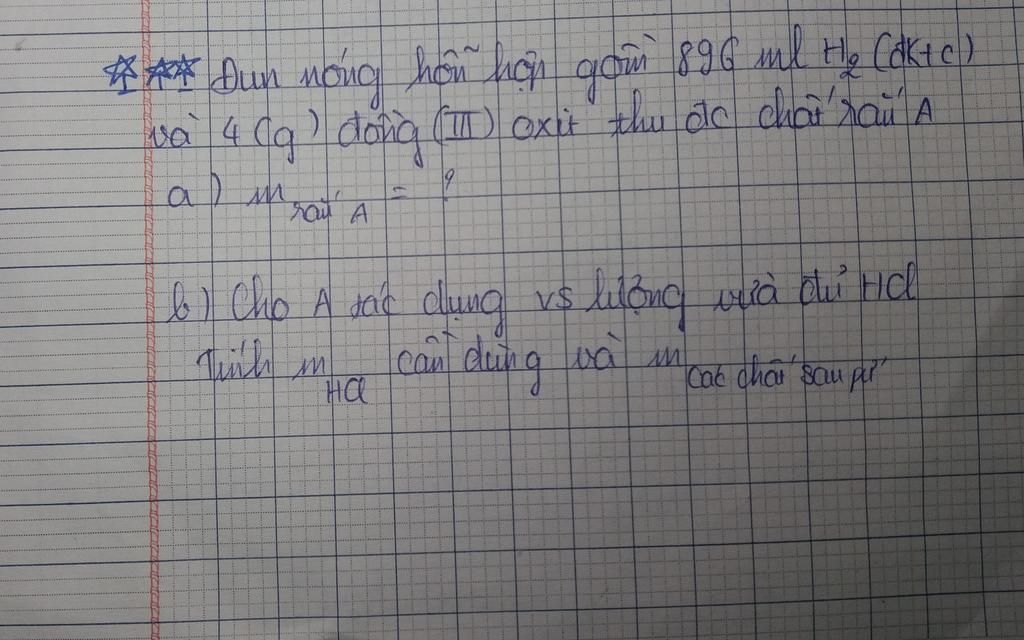 Đun nóng hỗn hợp gồm 896 ml H₂ (đktc)
và 4 (g) đồng (II) oxit thu đc chất rắn A
a) m rắn A = ?
b) Cho A tác dụng vs lượng vừa đủ HCl
Tính m HCl cần dùng và m các chất sau pư